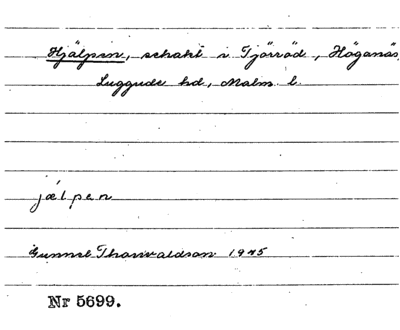 Hjälpen, schakt i Tjörröd, Höganäs,
Luggude hd, Malm. l.
jǽlpen
Gunnel Thorvaldson 1945
Nr 5699.